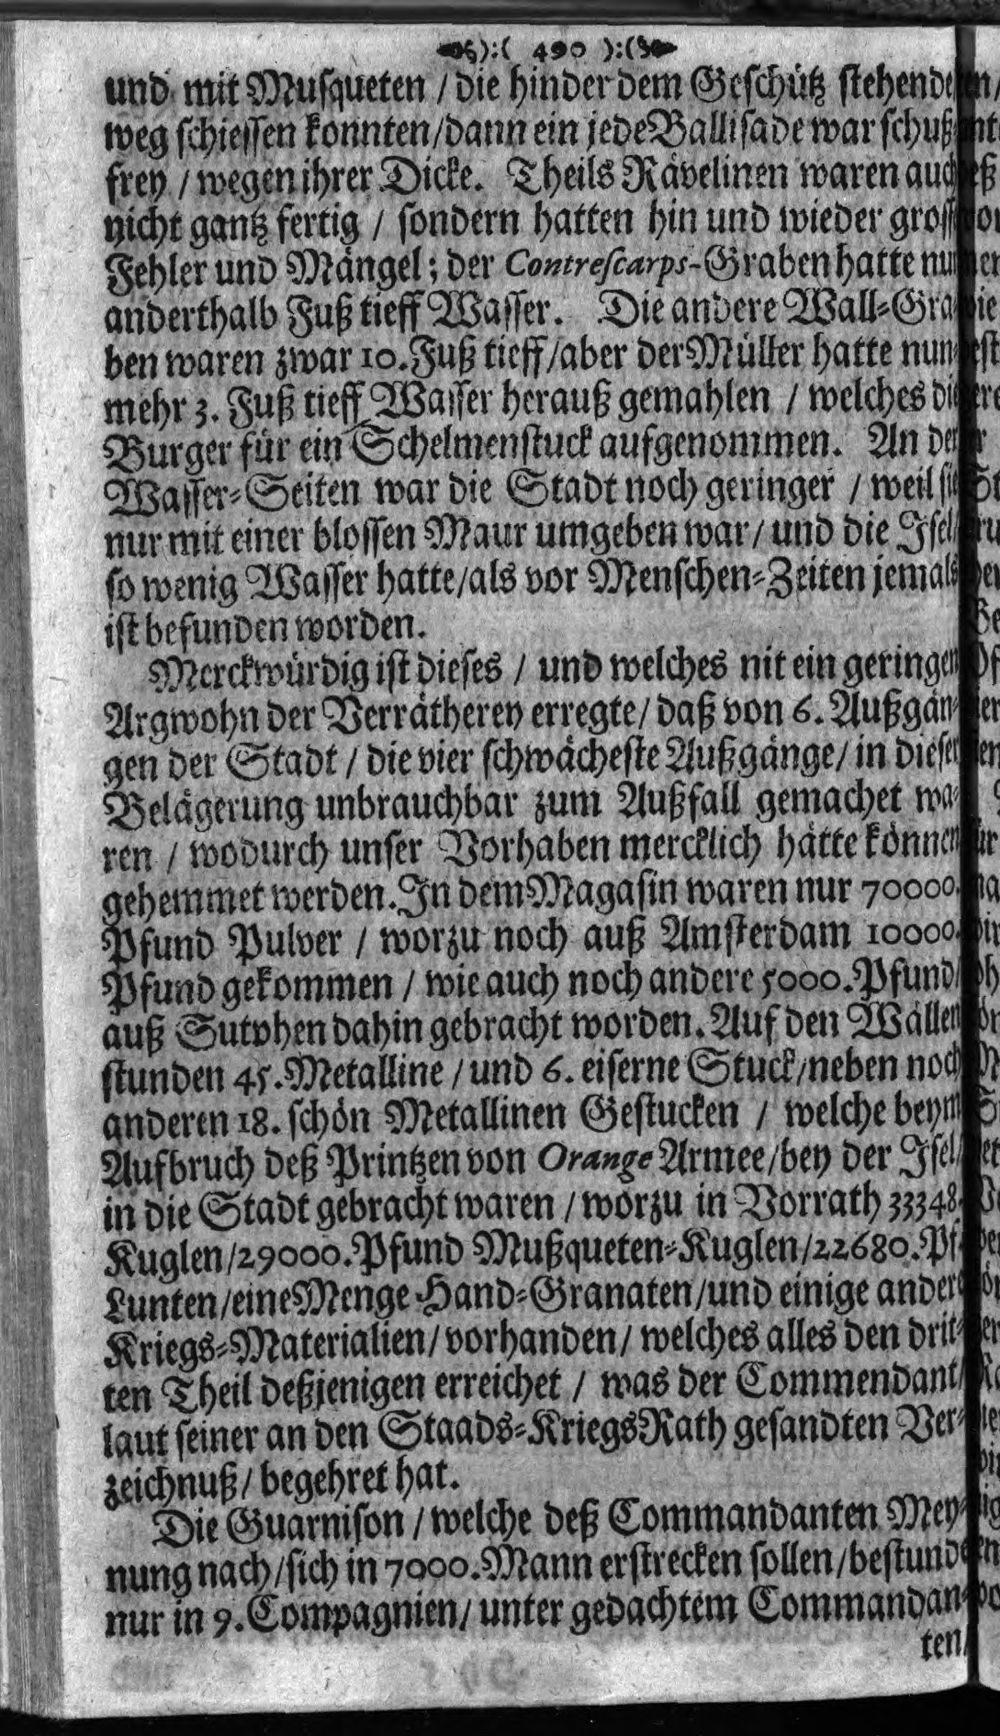 ):( 490 ):(
und mit Musqueten / die hinder dem Geschütz stehende
weg schiessen konnten/dann ein jede Ballisade war schuß-
frey / wegen ihrer Dicke. Theils Rävelinen waren auch
nicht gantz fertig / sondern hatten hin und wieder gross
Fehler und Mängel; der Contrescarps-Graben hatte nur
anderthalb Fuß tieff Wasser. Die andere Wall-Gra-
ben waren zwar 10. Fuß tieff/aber der Müller hatte nun-
mehr 3. Fuß tieff Wasser herauß gemahlen / welches die
Burger für ein Schelmenstuck aufgenommen. An der
Wasser-Seiten war die Stadt noch geringer / weil sie
nur mit einer blossen Maur umgeben war/ und die Isel/
so wenig Wasser hatte/als vor Menschen-Zeiten jemals
ist befunden worden.
Merckwürdig ist dieses / und welches nit ein geringen
Argwohn der Verrätherey erregte/ daß von 6. Außgän-
gen der Stadt / die vier schwächeste Außgänge/ in dieser
Belägerung unbrauchbar zum Außfall gemachet wa-
ren / wodurch unser Vorhaben mercklich hätte können
gehemmet werden. In dem Magasin waren nur 70000.
Pfund Pulver / worzu noch auß Amsterdam 10000.
Pfund gekommen / wie auch noch andere 5000. Pfund/
auß Sutphen dahin gebracht worden. Auf den Wällen
stunden 45. Metalline / und 6. eiserne Stuck/neben noch
anderen 18. schön Metallinen Gestucken / welche beym
Aufbruch deß Printzen von Orange Armee/bey der Isel/
in die Stadt gebracht waren / worzu in Vorrath 33348.
Kuglen/29000. Pfund Mußqueten-Kuglen/22680. Pf.
Lunten/eine Menge Hand-Granaten/und einige andere
Kriegs-Materialien/ vorhanden/ welches alles den drit-
ten Theil deßjenigen erreichet / was der Commendant/
laut seiner an den Staads-KriegsRath gesandten Ver-
zeichnuß/ begehret hat.
Die Guarnison / welche deß Commandanten Mey-
nung nach/sich in 7000. Mann erstrecken sollen/bestunde
nur in 9. Compagnien/ unter gedachtem Commandan-
ten/